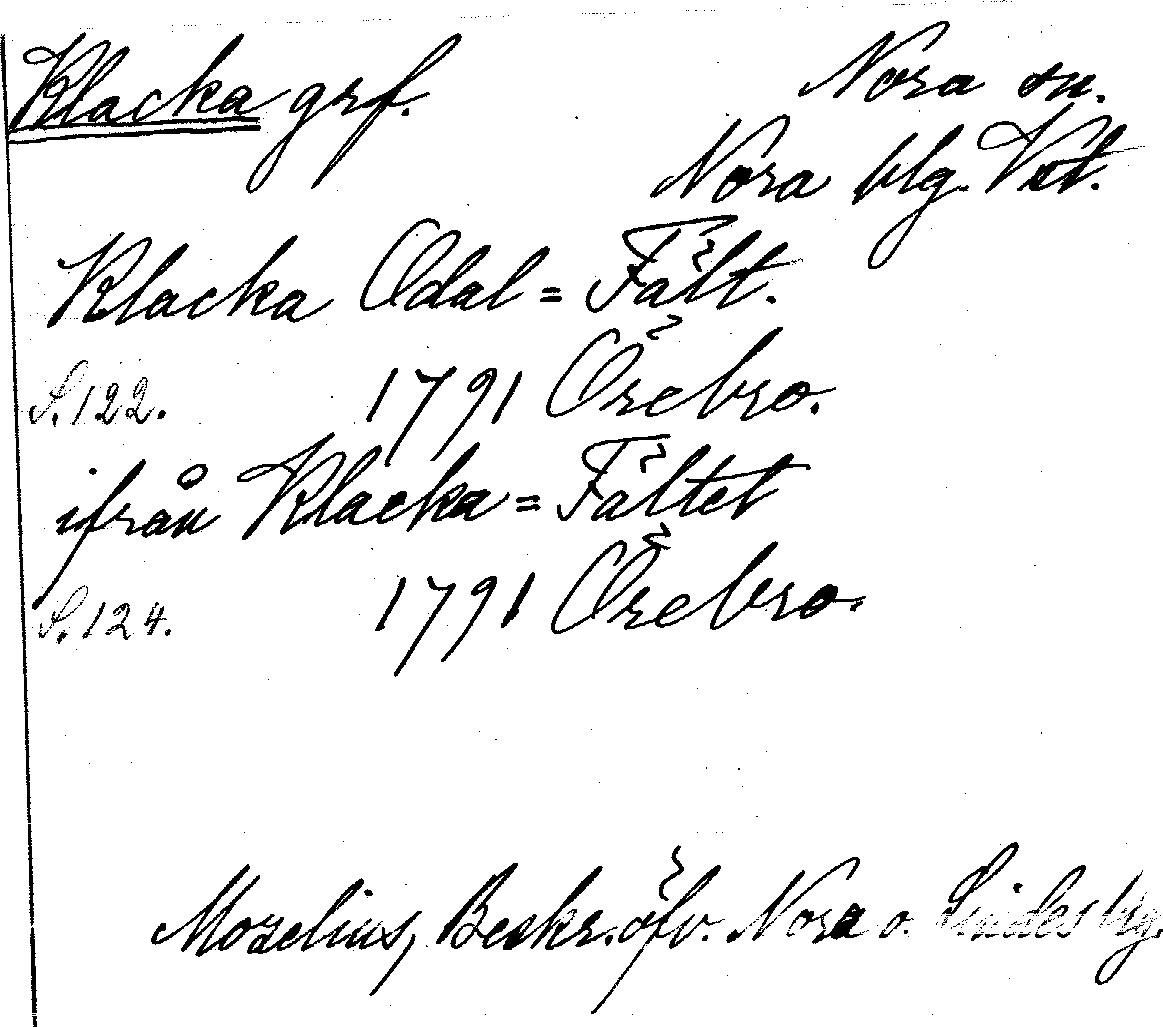 Klacka grf. Nora sn.
Nora blg. Vst.
Klacka Odal= Fält.
S. 122. 1791 Örebro.
ifrån Klacka= Fältet
S. 124. 1791 Örebro.
Mozelius, Beskr. öfv. Nora o. Lindes blg.